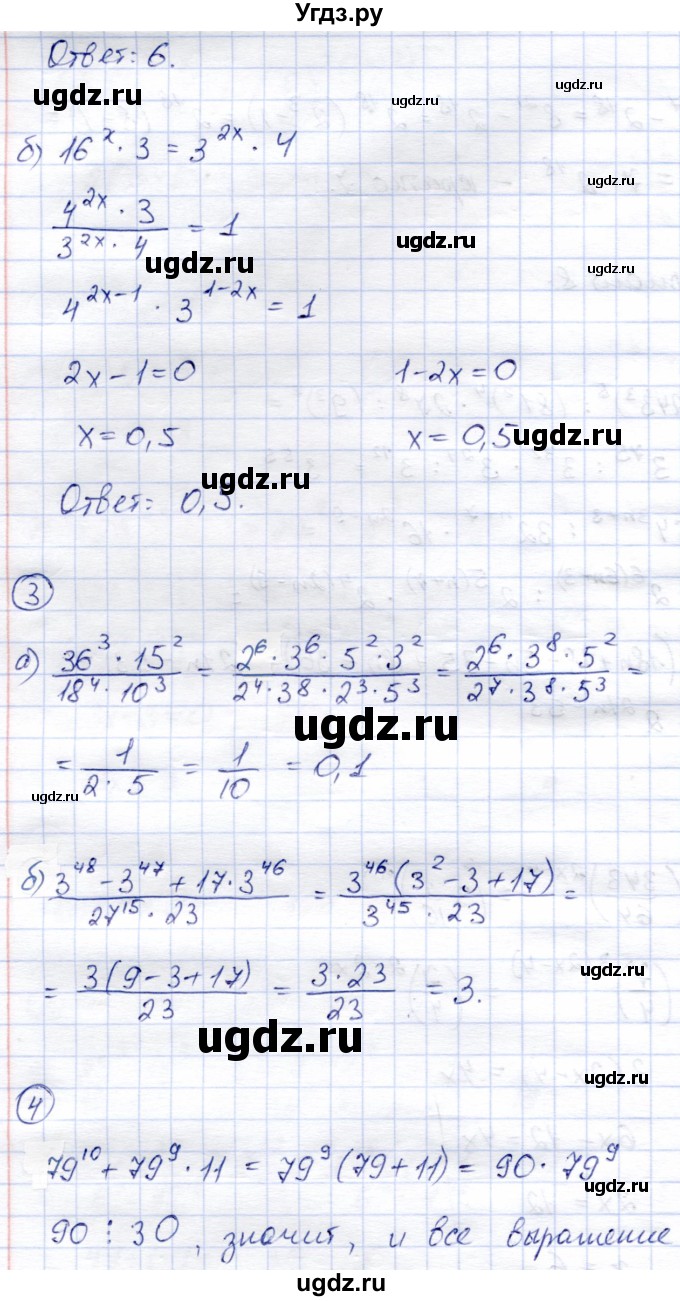 Угдз.ру
Ответ: 6.
ugdz.ru
б) 16^x · 3 = 3^{2x} · 4
\frac{4^{2x} · 3}{3^{2x} · 4} = 1
ugdz.ru
4^{2x-1} · 3^{1-2x} = 1
2x - 1 = 0    1 - 2x = 0
x = 0,5    x = 0,5
ugdz.ru
ugdz.ru
Ответ: 0,5.
③
а) \frac{36^3 · 15^2}{18^4 · 10^3} = \frac{2^6 · 3^6 · 5^2 · 3^2}{2^4 · 3^8 · 2^3 · 5^3} = \frac{2^6 · 3^8 · 5^2}{2^7 · 3^8 · 5^3} =
ugdz.ru
= \frac{1}{2 · 5} = \frac{1}{10} = 0,1
ugdz.ru
б) \frac{3^{48} - 3^{47} + 17 · 3^{46}}{27^{15} · 23} = \frac{3^{46} (3^2 - 3 + 17)}{3^{45} · 23} =
ugdz.ru
= \frac{3(9 - 3 + 17)}{23} = \frac{3 · 23}{23} = 3.
ugdz.ru
ugdz.ru
④
79^{10} + 79^9 · 11 = 79^9 (79 + 11) = 90 · 79^9
ugdz.ru
90 ⋮ 30, значит, и все выражение
ugdz.ru